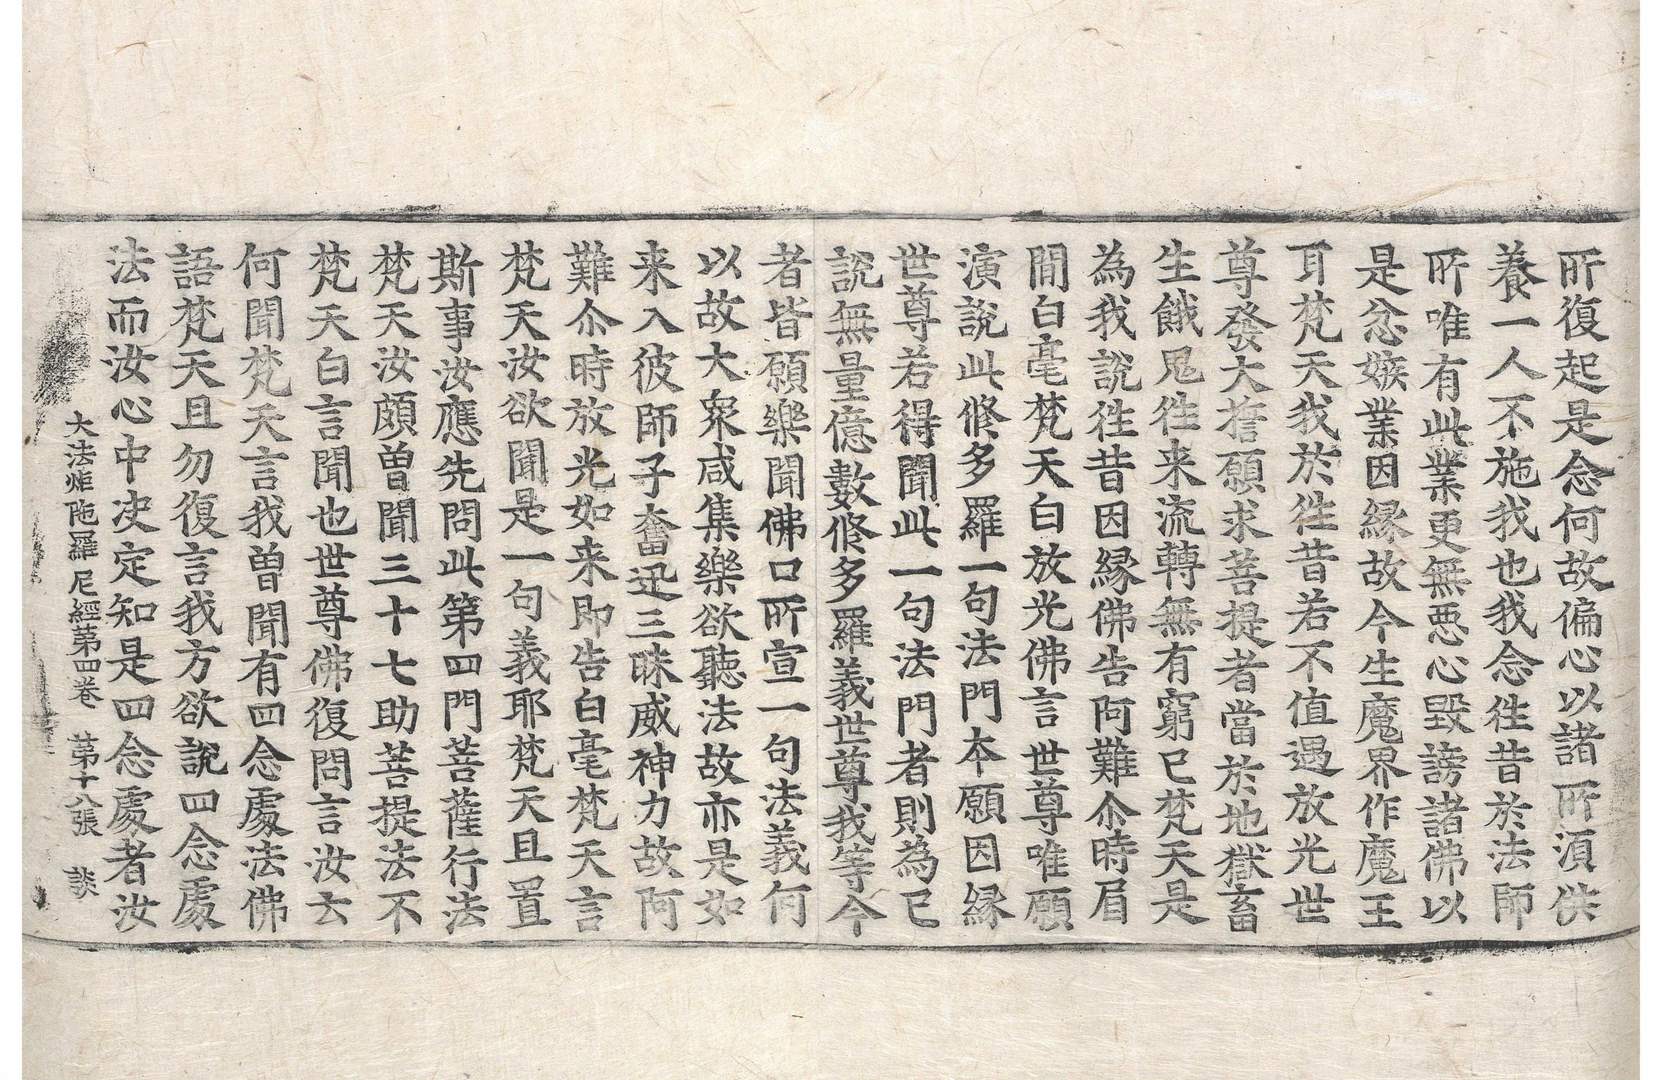 所復起是念何故偏心以諸所湏供
養一人不施我也我念徃昔於法師
所唯有此業更無惡心毀謗諸佛以
是忿嫉業因縁故今生魔界作魔王
耳梵天我於徃昔若不值遇放光世
尊發大誓願求菩提者當於地獄畜
生餓鬼徃来流轉無有窮已梵天是
為我說徃昔因縁佛告阿難尒時眉
間白毫梵天白放光佛言世尊唯願
演說此修多羅一句法門本願因縁
世尊若得聞此一句法門者則為已
說無量億數修多羅義世尊我等今
者皆願樂聞佛口所宣一句法義何
以故大衆咸集樂欲聽法故亦是如
来入彼師子奮迅三昧威神力故阿
難尒時放光如来即告白毫梵天言
梵天汝欲聞是一句義耶梵天且置
斯事汝應先問此第四門菩薩行法
梵天汝頗曽聞三十七助菩提法不
梵天白言聞也世尊佛復問言汝云
何聞梵天言我曽聞有四念處法佛
語梵天且勿復言我方欲說四念處
法而汝心中决定知是四念處者汝
大法炬陁羅尼經第四卷　第十八張　談